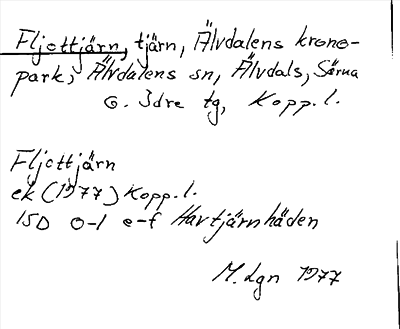 Fljottjärn, tjärn, Älvdalens krono-
park, Älvdalens sn, Älvdals, Särna
o. Idre tg, Kopp.l.
Fljottjärn
ek (1977) Kopp.l.
15D 0-1 e-f Havtjärnhäden
M. Lgn 1977